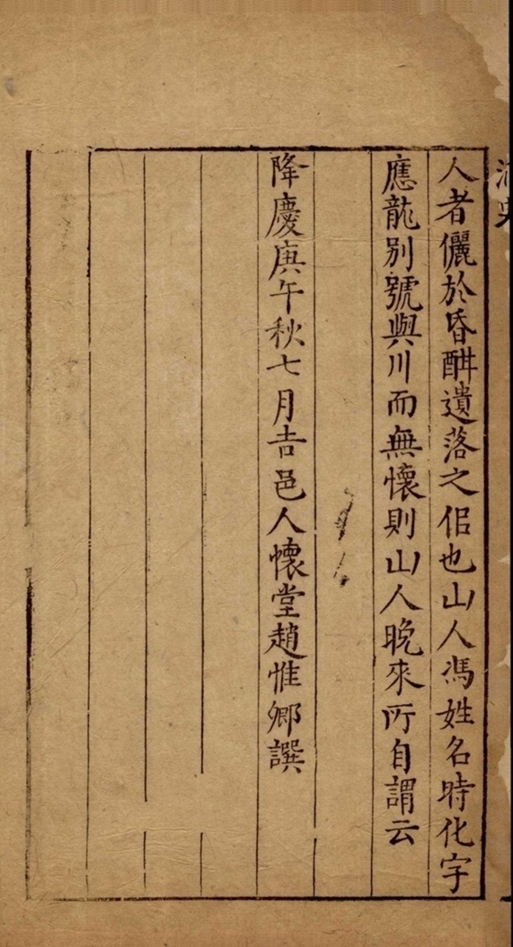 人者儷於昏酣遺落之侶也山人馮姓名時化字
應龍別號與川而無懷則山人晚來所自謂云
隆慶庚午秋七月吉邑人懷堂趙惟卿譔